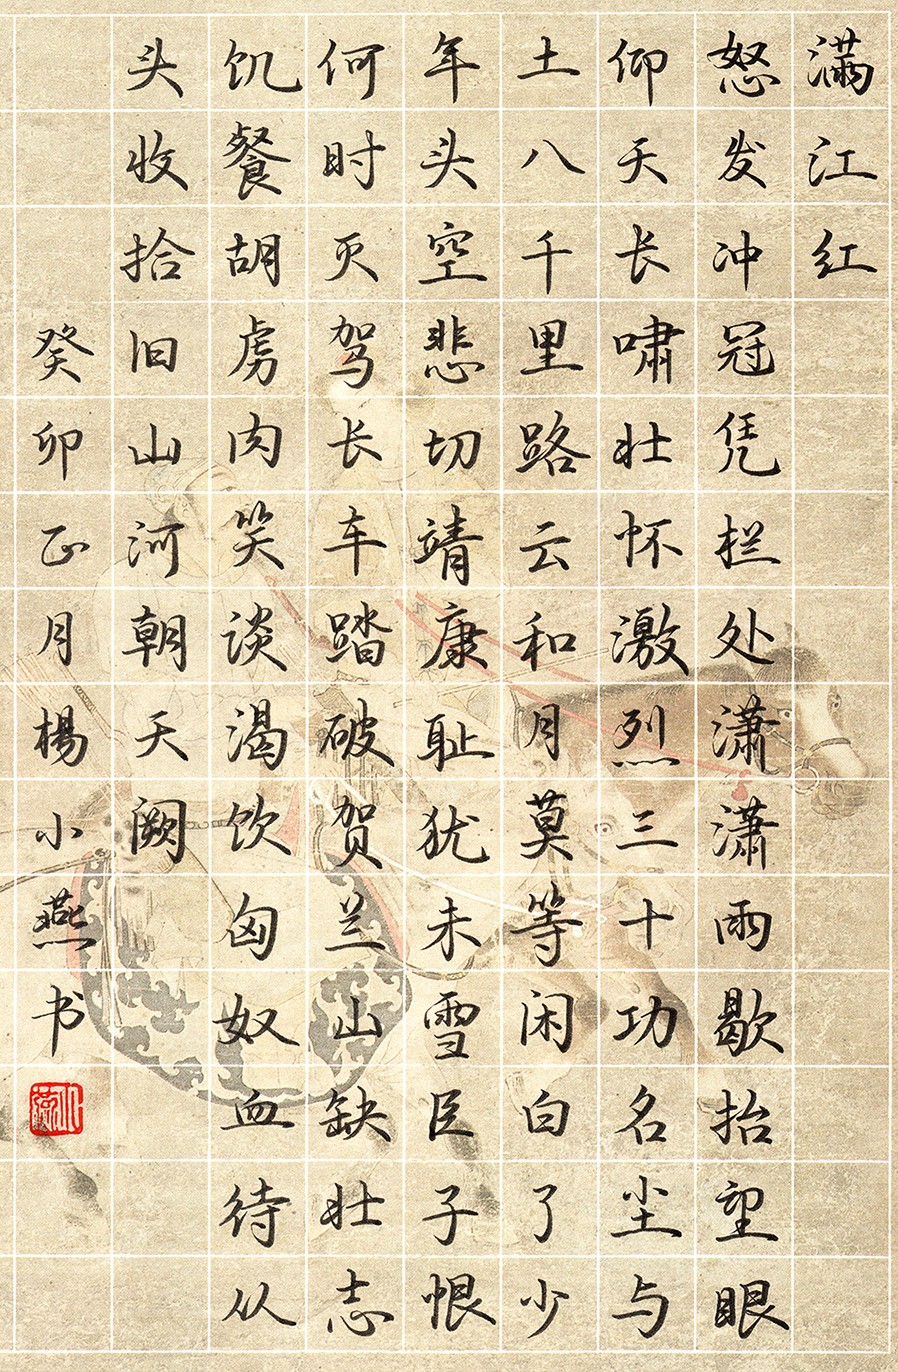 满江红
怒发冲冠凭栏处潇潇雨歇抬望眼
仰天长啸壮怀激烈三十功名尘与
土八千里路云和月莫等闲白了少
年头空悲切靖康耻犹未雪臣子恨
何时灭驾长车踏破贺兰山缺壮志
饥餐胡虏肉笑谈渴饮匈奴血待从
头收拾旧山河朝天阙
癸卯正月楊小燕书